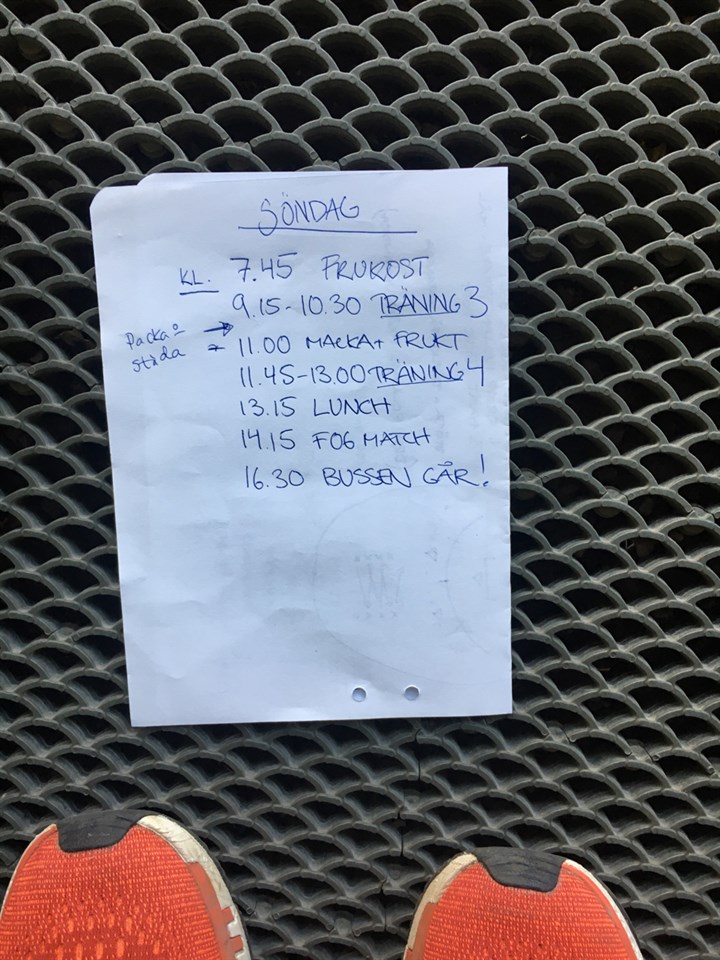 SÖNDAG
KL. 7.45 FRUKOST
9.15-10.30 TRÄNING 3
Packa o
städa
11.00 MACKA + FRUKT
11.45-13.00 TRÄNING 4
13.15 LUNCH
14.15 FOG MATCH
16.30 BUSSEN GÅR!